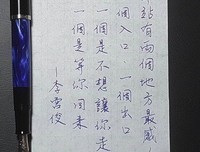 站有兩個地方最感
個入口 一個出口
一個是不想讓你走
一個是等你回來
—李